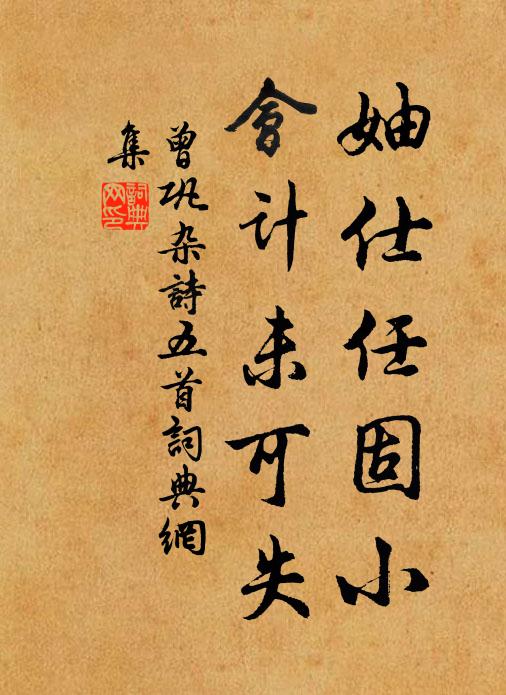 妯仕任固小
會计未可失
曾巩杂詩五首詞典網
集
詞典网印